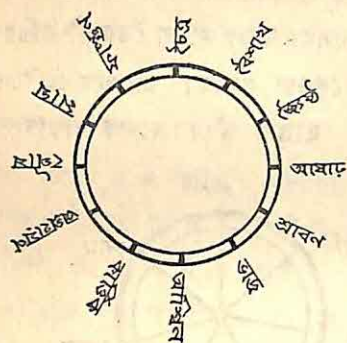 চৈত্র
বৈশাখ
জ্যৈষ্ঠ
আষাঢ়
শ্রাবন
ভাদ্র
আশ্বিন
কার্তিক
অগ্রহায়ণ
পৌষ
মাঘ
ফাল্গুন